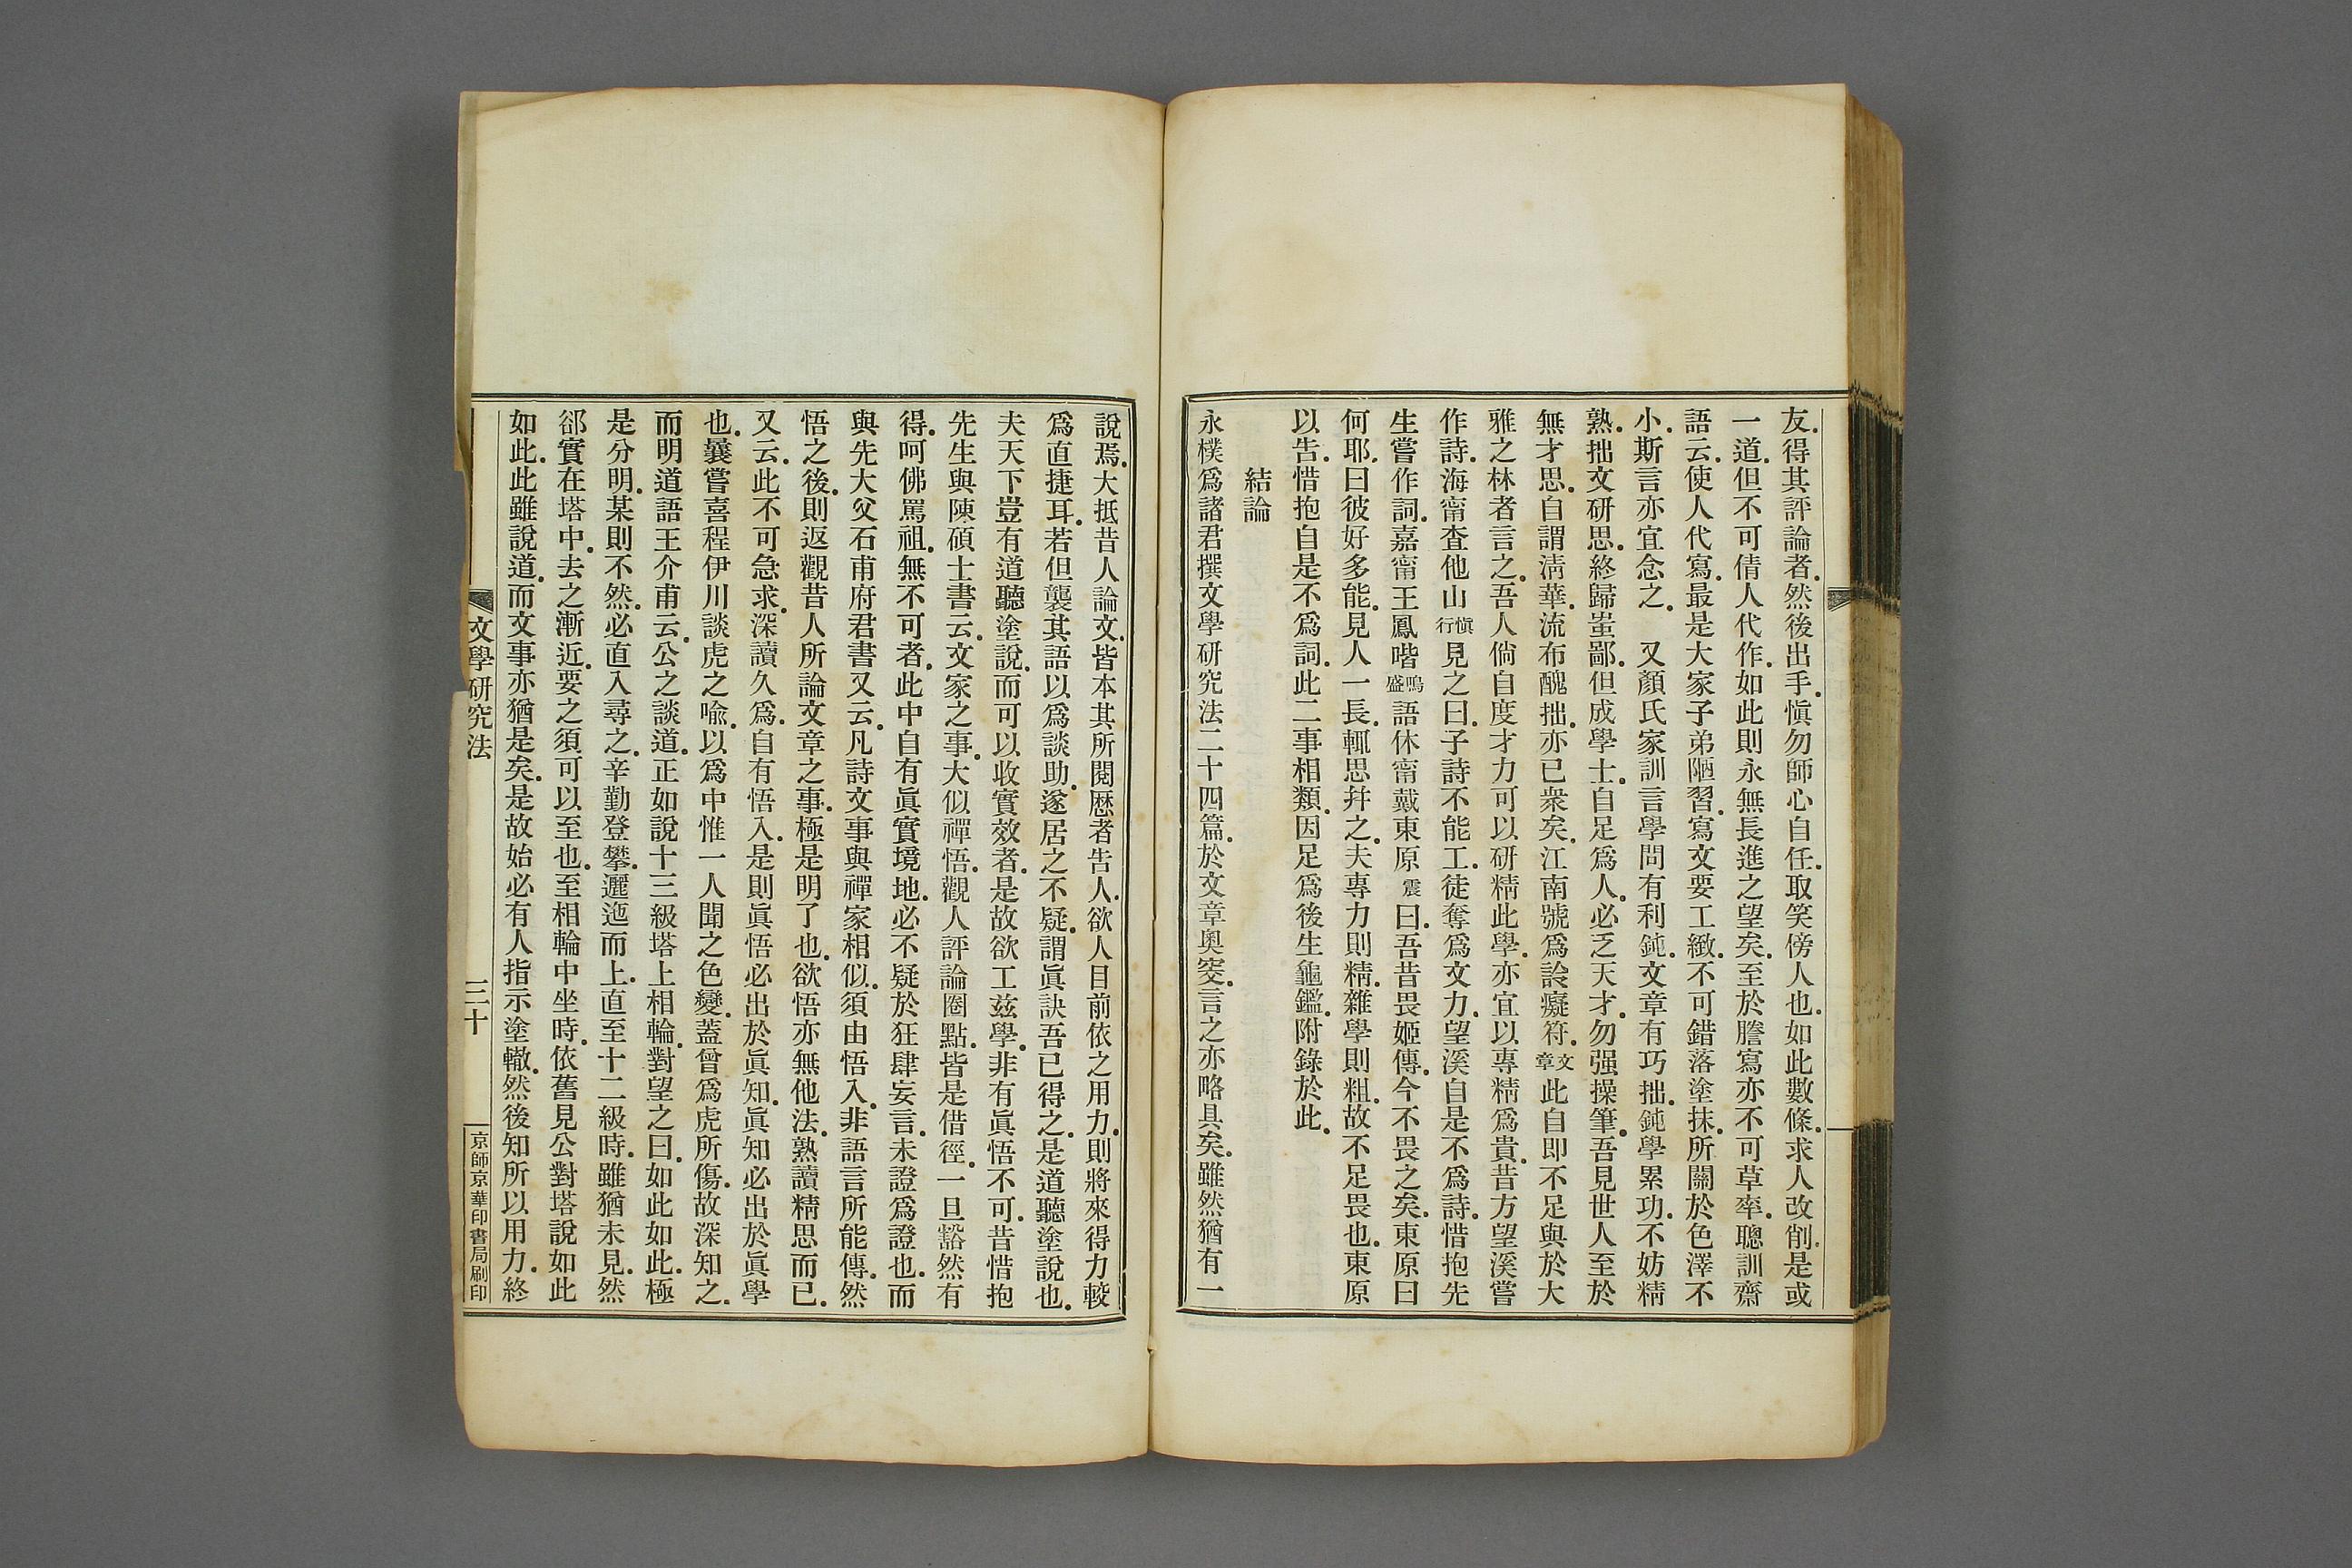 友．得其評論者．然後出手．愼勿師心自任．取笑傍人也．如此數條．求人改削．是或
一道．但不可倩人代作．如此則永無長進之望矣．至於謄寫亦不可草率．聰訓齋
語云．使人代寫．最是大家子弟陋習．寫文要工緻．不可錯落塗抹．所關於色澤不
小．斯言亦宜念之　又顏氏家訓言學問有利鈍．文章有巧拙．鈍學累功．不妨精
熟．拙文研思．終歸蚩鄙．但成學士．自足爲人．必乏天才．勿强操筆．吾見世人至於
無才思．自謂淸華．流布醜拙．亦已衆矣．江南號爲詅癡符．文章此自卽不足與於大
雅之林者言之．吾人倘自度才力可以研精此學．亦宜以專精爲貴．昔方望溪嘗
作詩．海甯査他山愼行見之曰．子詩不能工．徒奪爲文力．望溪自是不爲詩．惜抱先
生嘗作詞．嘉甯王鳳喈鳴盛語休甯戴東原震曰．吾昔畏姬傳．今不畏之矣．東原曰
何耶．曰彼好多能．見人一長．輒思幷之．夫專力則精．雜學則粗．故不足畏也．東原
以告．惜抱自是不爲詞．此二事相類．因足爲後生龜鑑．附錄於此．
結論
永樸爲諸君撰文學硏究法二十四篇．於文章奧窔．言之亦略具矣．雖然猶有一
說焉．大抵昔人論文．皆本其所閱歷者告人．欲人目前依之用力．則將來得力較
爲直捷耳．若但襲其語以爲談助．遂居之不疑．謂眞訣吾已得之．是道聽塗說也．
夫天下豈有道聽塗說．而可以收實效者．是故欲工茲學．非有眞悟不可．昔惜抱
先生與陳碩士書云．文家之事．大似禪悟．觀人評論圈點．皆是借徑．一旦豁然有
得．呵佛罵祖．無不可者．此中自有眞實境地．必不疑於狂肆妄言．未證爲證也．而
與先大父石甫府君書又云．凡詩文事與禪家相似．須由悟入．非語言所能傳．然
悟之後．則返觀昔人所論文章之事．極是明了也．欲悟亦無他法．熟讀精思而已．
又云．此不可急求．深讀久爲．自有悟入．是則眞悟必出於眞知．眞知必出於眞學
也．曩嘗喜程伊川談虎之喩．以爲中惟一人聞之色變．蓋曾爲虎所傷．故深知之．
而明道語王介甫云．公之談道．正如說十三級塔上相輪．對望之曰．如此如此．極
是分明．某則不然．必直入尋之．辛勤登攀．邐迤而上．直至十二級時．雖猶未見．然
郤實在塔中．去之漸近．要之須可以至也．至相輪中坐時．依舊見公對塔說如此
如此．此雖說道．而文事亦猶是矣．是故始必有人指示塗轍．然後知所以用力．終
文學硏究法
三十
京師京華印書局刷印